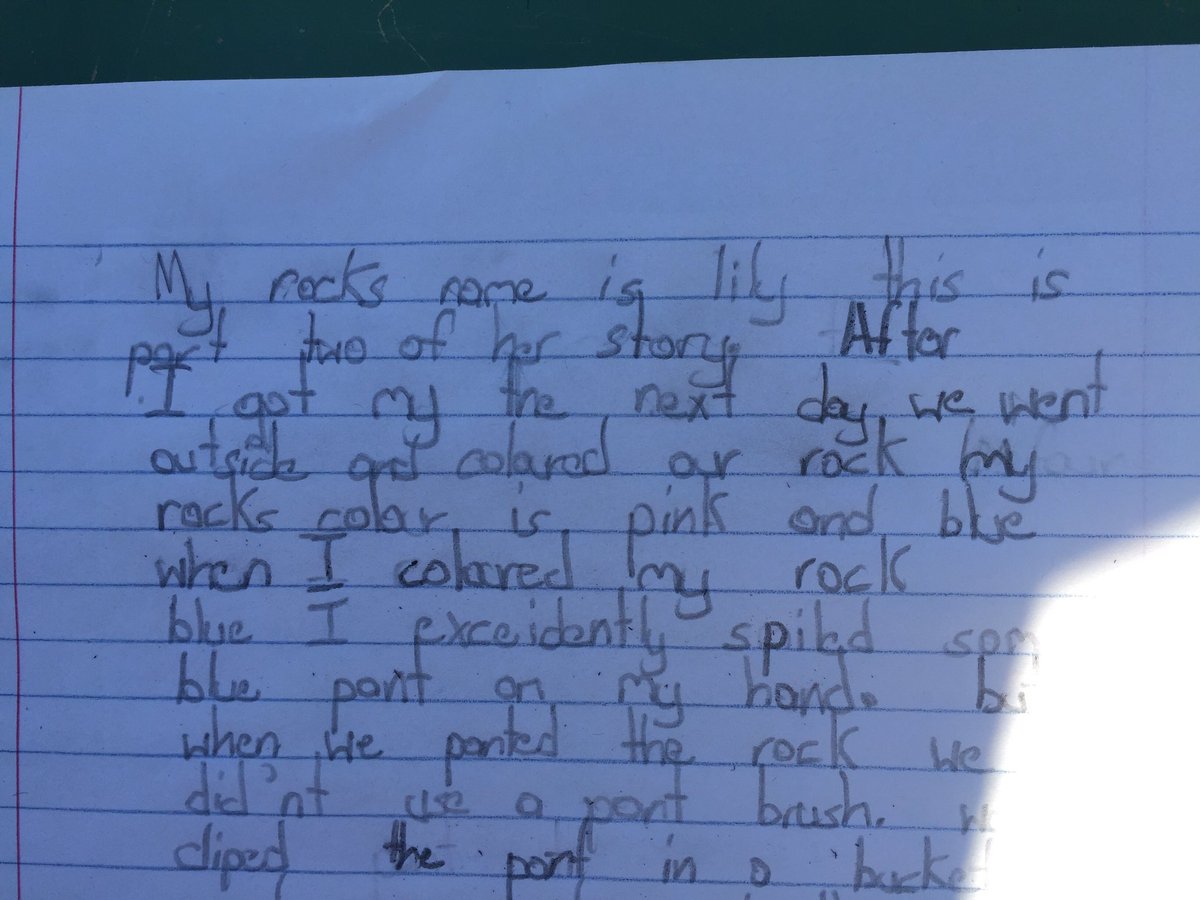 My rocks name is lily this is
part two of her story. After
I got my the next day we went
outside and colared our rock my
rocks colar is pink and blue
when I colared my rock
blue I exceidently spiled
blue pant on my hand.
when we panted the rock we
did'nt use a pant brush.
diped the pant in a